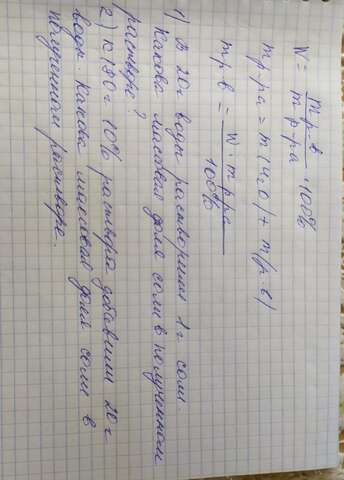 W = m р-в / m р-ра · 100%
m р-ра = m (H₂O) + m (р.в)
m р.в = W · m р-ра / 100%
1) В 20 г воды растворили 1 г соли.
Какова массовая доля соли в полученном
растворе?
2) К 180 г 10% раствора добавили 20 г
воды. Какова массовая доля соли в
полученном растворе.